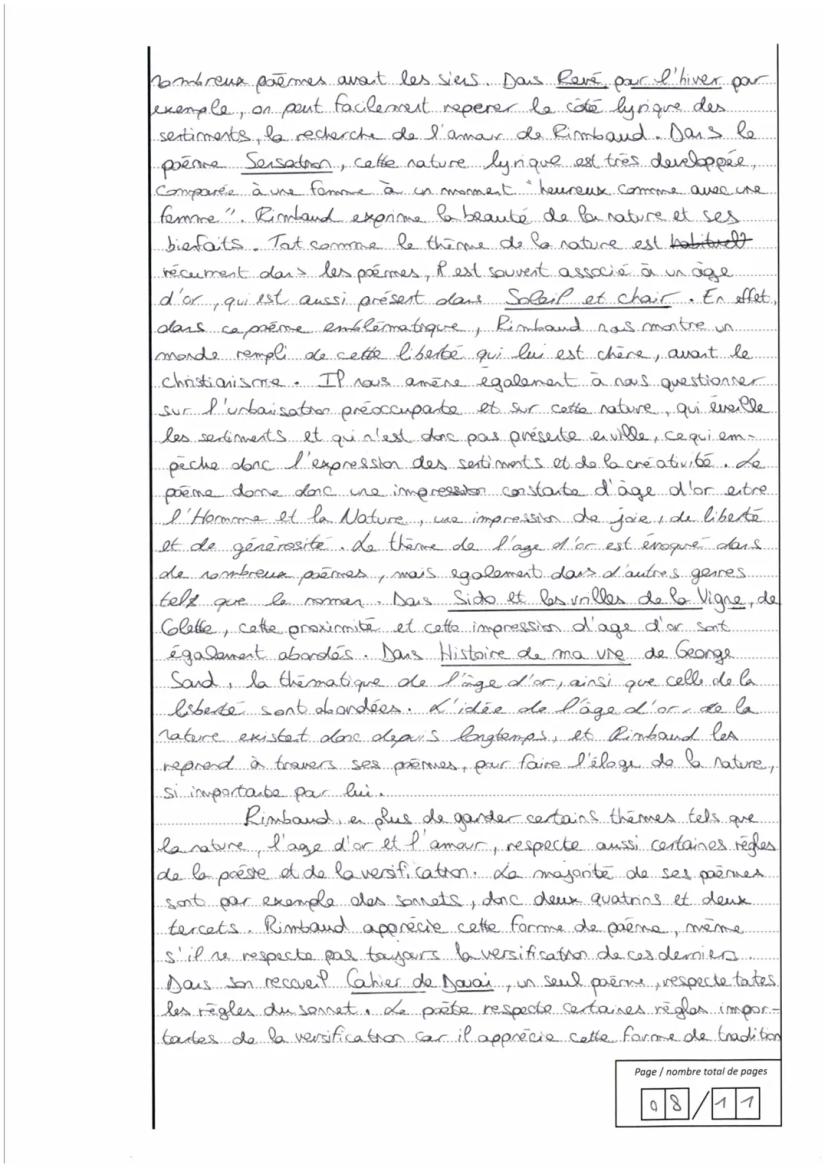 nombreux poèmes avant les siens. Dans Revé pour l'hiver par
exemple, on peut facilement reperer le coté lyrique des
sentiments, la recherche de l'amour de Rimbaud. Dans le
poème Sensation, cette nature lyrique est très developpée,
comparée à une femme à un moment "heureux comme avec une
femme". Rimbaud exprime la beauté de la nature et ses
biefaits. Tout comme le thème de la nature est habituel
récurrent dans les poèmes, il est souvent associé à un âge
d'or, qui est aussi présent dans Soleil et chair. En effet,
dans ce poème emblématique, Rimbaud nous montre un
monde rempli de cette liberté qui lui est chère, avant le
christianisme. Il nous amène également à nous questionner
sur l'urbaisation préoccupante et sur cette nature, qui éveille
les sentiments et qui n'est donc pas présente en ville, ce qui em-
pêche donc l'expression des sentiments et de la créativité. Le
poème donne donc une impression constante d'âge d'or entre
l'Homme et la Nature, une impression de joie, de liberté
et de générosité. Le thème de l'age d'or est évoqué dans
de nombreux poèmes, mais egalement dans d'autres genres
tels que le roman. Dans Sido et les vrilles de la Vigne, de
Colette, cette proximité et cette impression d'age d'or sont
également abordés. Dans Histoire de ma vie de George
Sand, la thématique de l'âge d'or, ainsi que celle de la
liberté sont abordées. L'idée de l'âge d'or, de la
nature existent donc depuis longtemps, et Rimbaud les
reprend à travers ses poèmes, pour faire l'éloge de la nature,
si importante par lui.
Rimbaud, en plus de garder certains thèmes tels que
la nature, l'age d'or et l'amour, respecte aussi certaines règles
de la poésie et de la versification. La majorité de ses poèmes
sont par exemple des sonnets, donc deux quatrins et deux
tercets. Rimbaud apprécie cette forme de poème, même
s'il ne respecte pas toujours la versification de ces derniers.
Dans son recueil Cahier de Douai, un seul poème, respecte toutes
les règles du sonnet. Le poète respecte certaines règles impor-
tantes de la versification car il apprécie cette forme de tradition
Page / nombre total de pages
08/11